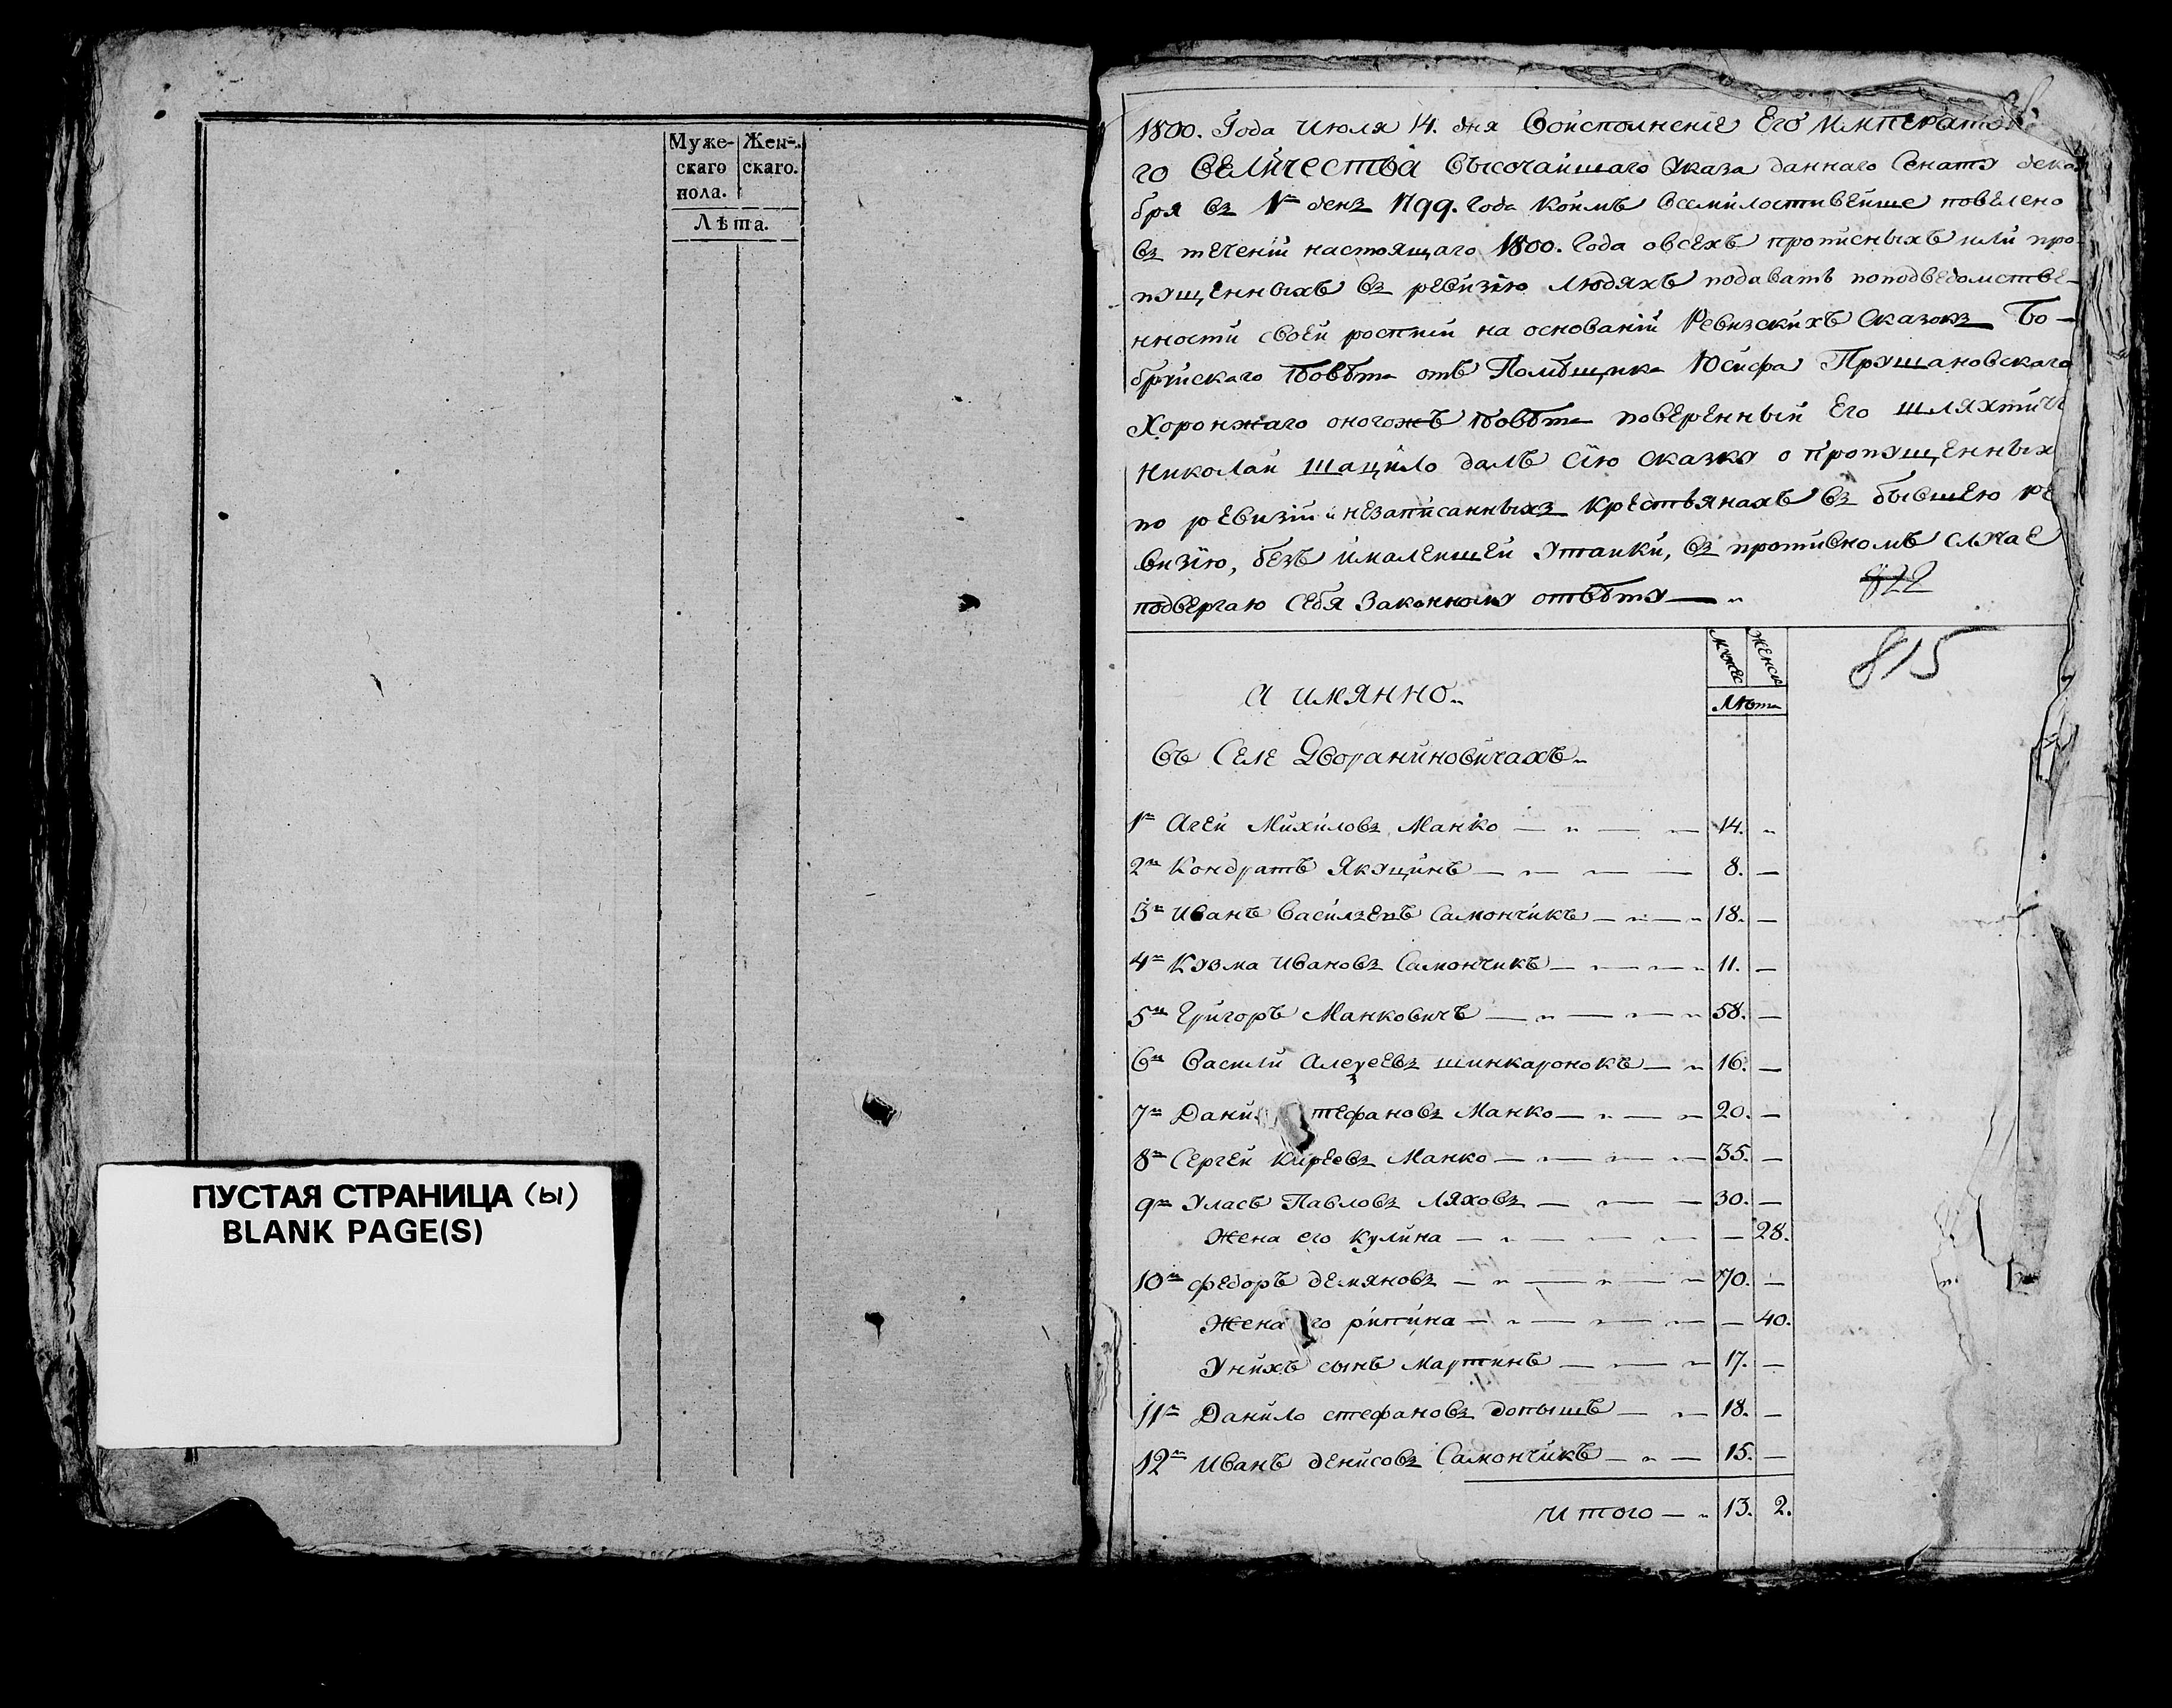 Муже- Жен-
скаго скаго.
пола.
Лѣта.
ПУСТАЯ СТРАНИЦА (ы)
BLANK PAGE(S)
1800. Года Июля 14. дня Воисполненiе Его Императорска
го Величества Высочаишаго Указа даннаго Сенату дека
бря въ 1й день 1799. Года коимъ Всемилостивейше повелено
въ теченiи настоящаго 1800. Года овсехъ прописныхъ или про
пущенныхъ въ ревизiю людяхъ подавать поподведомстве-
нности своеи росписи на основанiи Ревизскихъ Сказокъ Бо-
бруйскаго Повѣта отъ Помѣщика Юсифа Прушановскаго
Хоронжаго оногожъ повѣта поверенный Его шляхтичь
Николаи Шацило далъ Сiю сказку о пропущенныхъ
по ревизiи и незаписанныхъ крестьянахъ въ бывшею ре
визiю, безъ ималеишеи утаики, въ противномъ случае
подвергаю себя Законному отвѣту 822
815
мужес женск
Лѣта
а имянно
въ Селе Дворaниновичахъ
1й Агеи Михиловъ Манко 14.
2й Кондратъ Якущинъ 8.
3й Иванъ Васильевъ Самончикъ 18.
4й Кузма Ивановъ Самончикъ 11.
5й Григоръ Манковичъ 58.
6й Василй Алексеевъ шинкаронокъ 16.
7й Дани тефановъ Манко 20.
8й Сергеи Киреевъ Манко 35.
9й Уласъ Павловъ Ляховъ 30.
Жена его Кулина 28.
10й федоръ демяновъ 70.
Жена его 40.
Унихъ сынъ мартинъ 17.
11й Данило стефановъ допышъ 18.
12й Иванъ денисовъ Самончикъ 15.
Итого 13. 2.